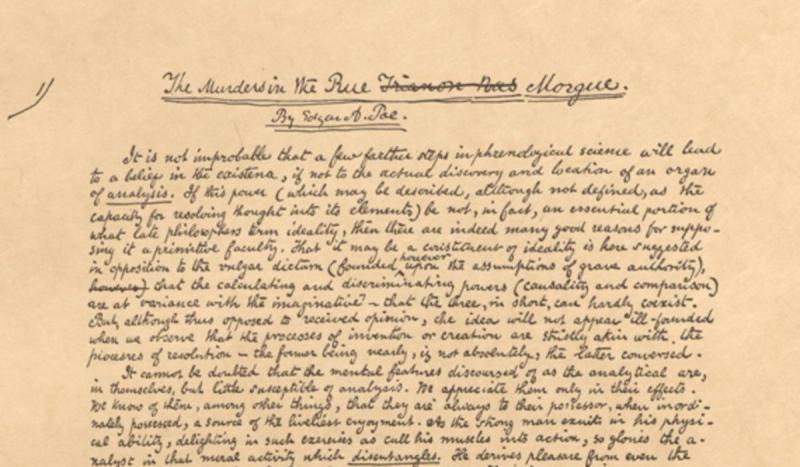 1)
The Murders in the Rue Trianon Bas Morgue.
By Edgar A. Poe.
It is not improbable that a few farther steps in phrenological science will lead
to a belief in the existence, if not to the actual discovery and location of an organ
of analysis. If this power (which may be described, although not defined, as the
capacity for resolving thought into its elements) be not, in fact, an essential portion of
what late philosophers term ideality, then there are indeed many good reasons for suppo-
sing it a primitive faculty. That it may be a constituent of ideality is here suggested
in opposition to the vulgar dictum (founded, however, upon the assumptions of grave authority),
however) that the calculating and discriminating powers (causality and comparison)
are at variance with the imaginative — that the three, in short, can hardly coexist.
But, although thus opposed to received opinion, the idea will not appear ill-founded
when we observe that the processes of invention or creation are strictly akin with the
processes of resolution — the former being nearly, if not absolutely, the latter conversed.
It cannot be doubted that the mental features discoursed of as the analytical are,
in themselves, but little susceptible of analysis. We appreciate them only in their effects.
We know of them, among other things, that they are always to their possessor, when inordi-
nately possessed, a source of the liveliest enjoyment. As the strong man exults in his physi-
cal ability, delighting in such exercises as call his muscles into action, so glories the a-
nalyst in that moral activity which disentangles. He derives pleasure from even the